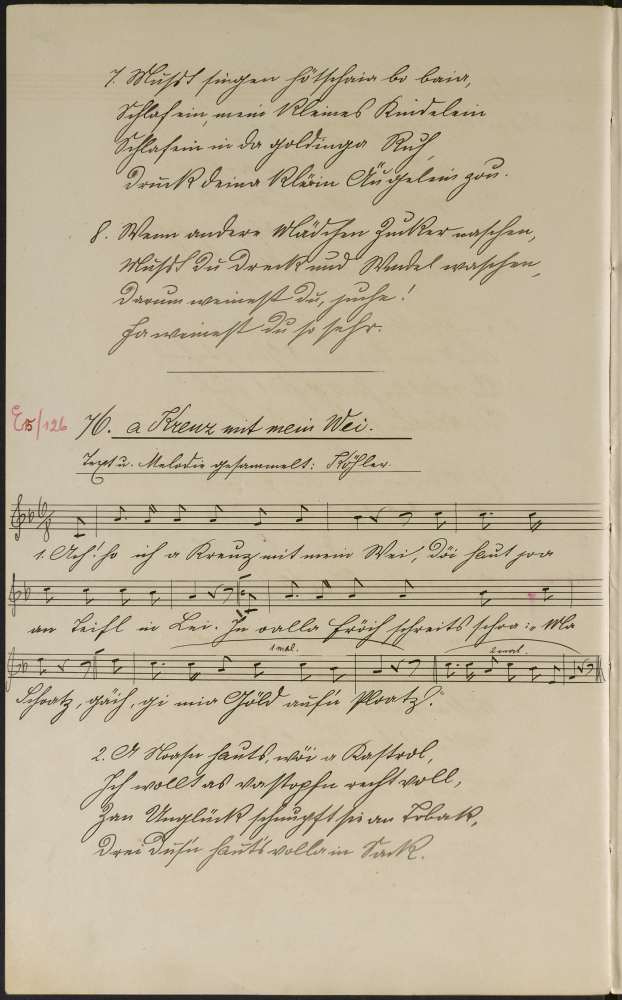 7. Mußt singen hötschaia bo baia,
Schlaf ein, mein kleines Kindelein
Schlaf ein in da goldinga Ruh
Drück deina kläin Äugelein zou.
8. Wenn andere Mädchen Zucker naschen,
Mußt du Dreck und Windel waschen,
Darum weinest du, juche!
Ja weinest du so sehr.
E15/126 76. a Kreuz mit mein Wei.
Text u. Melodie gesammelt: Köhler.
1. Ach! ho ich a Kreuz mit mein Wei, döi haut joa
an Teifl in Lei. In oalla Fröih schreits schoa: Ma
1 mal. 2 mal.
Schoatz, gäih, gi mia Göld aufn Ploatz.
2. A Noasn hauts, wöi a Kastrol,
Ich wollt as vastopfn recht voll,
Zan Unglück schnupft sie an Tobak,
Drei Dusn hauts volla in Sack.